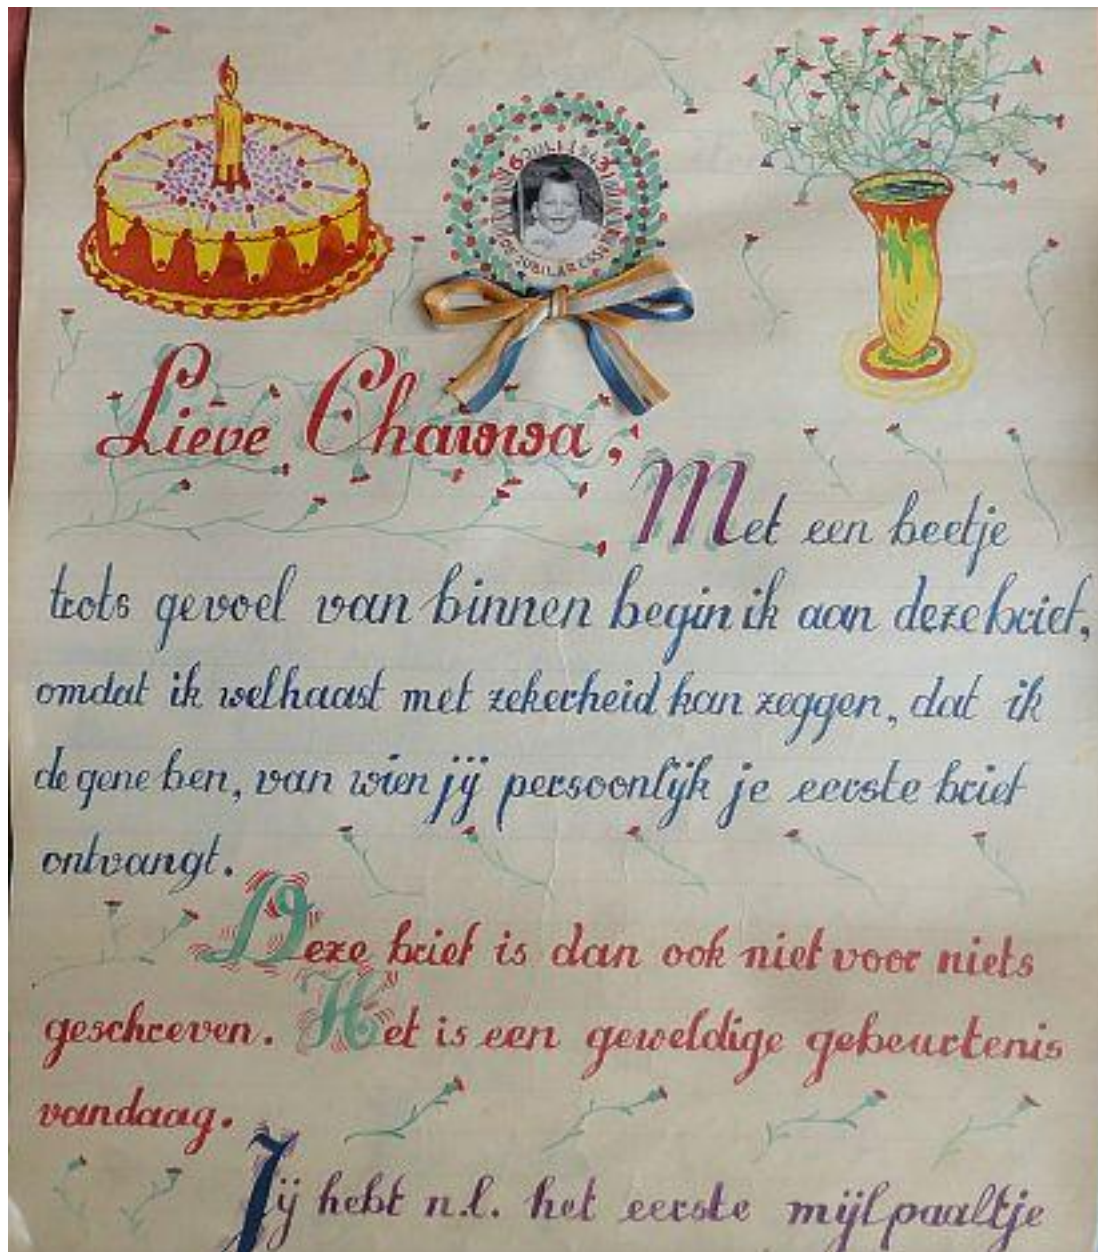 6 JULI 1943
JUBILARESSE
Lieve Chawwa,
Met een beetje
trots gevoel van binnen begin ik aan deze brief,
omdat ik welhaast met zekerheid kan zeggen, dat ik
de gene ben, van wien jij persoonlijk je eerste brief
ontvangt.
Deze brief is dan ook niet voor niets
geschreven. Het is een geweldige gebeurtenis
vandaag.
Jij hebt n.l. het eerste mijlpaaltje